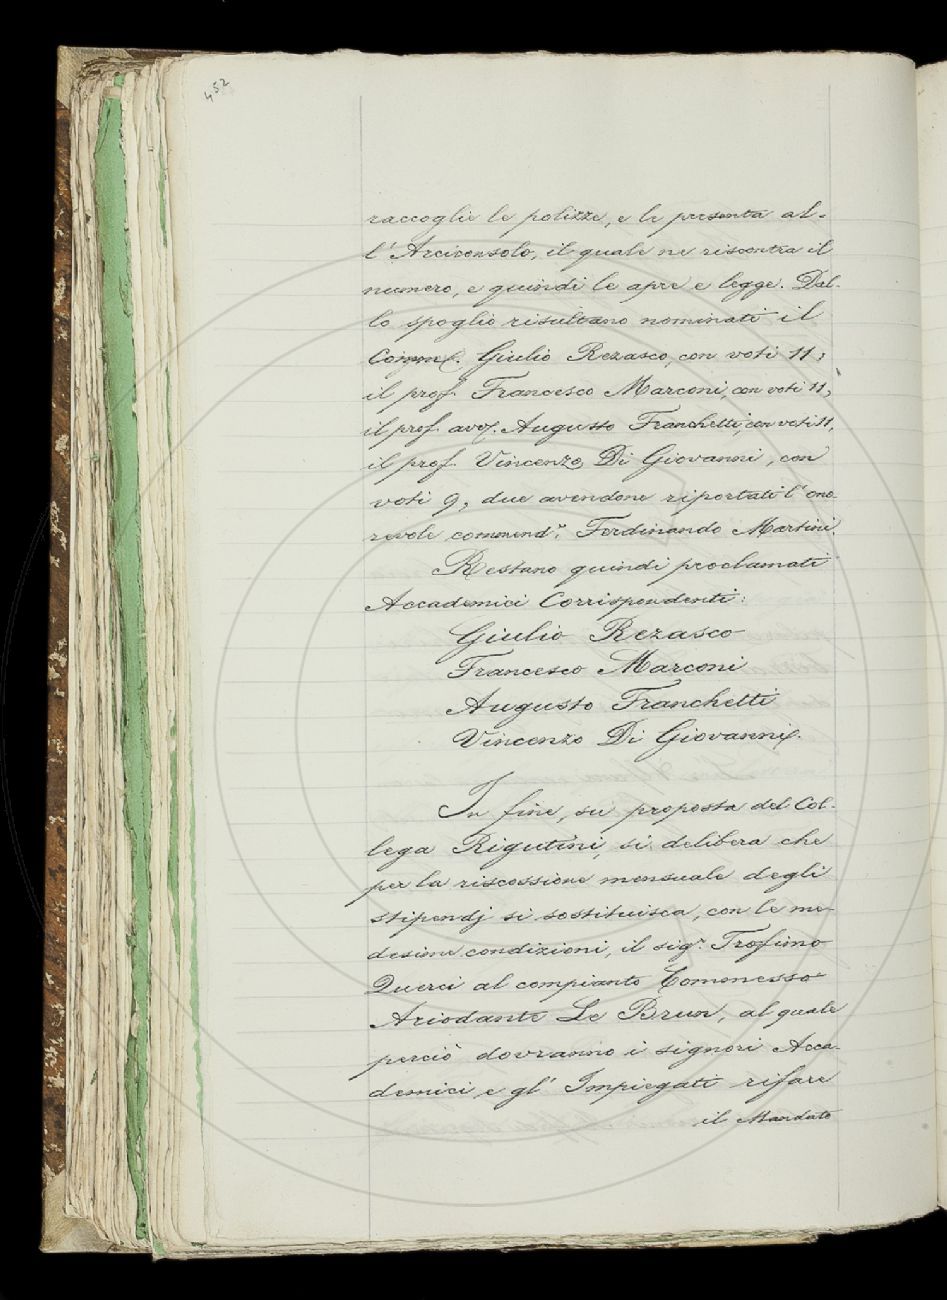 452
raccoglie le polizze, e le presenta al-
l'Arciconsolo, il quale ne riscontra il
numero, e quindi le apre e legge. Dal-
lo spoglio risultano nominati il
Comm. Giulio Rezasco, con voti 11;
il prof. Francesco Marconi, con voti 11;
il prof. avv. Augusto Franchetti, con voti 11,
il prof. Vincenzo Di Giovanni, con
voti 9, due avendone riportati l'ono-
revole commend.e Ferdinando Martini.
Restano quindi proclamati
Accademici Corrispondenti:
Giulio Rezasco
Francesco Marconi
Augusto Franchetti
Vincenzo Di Giovanni.
In fine, su proposta del Col-
lega Rigutini, si delibera che
per la riscossione mensuale degli
stipendj si sostituisca, con le me-
desime condizioni, il sig.r Trofimo
Querci al compianto
Ariodante Le Brun, al quale
perciò dovranno i signori Acca-
demici e gl'Impiegati rifare
il Mandato